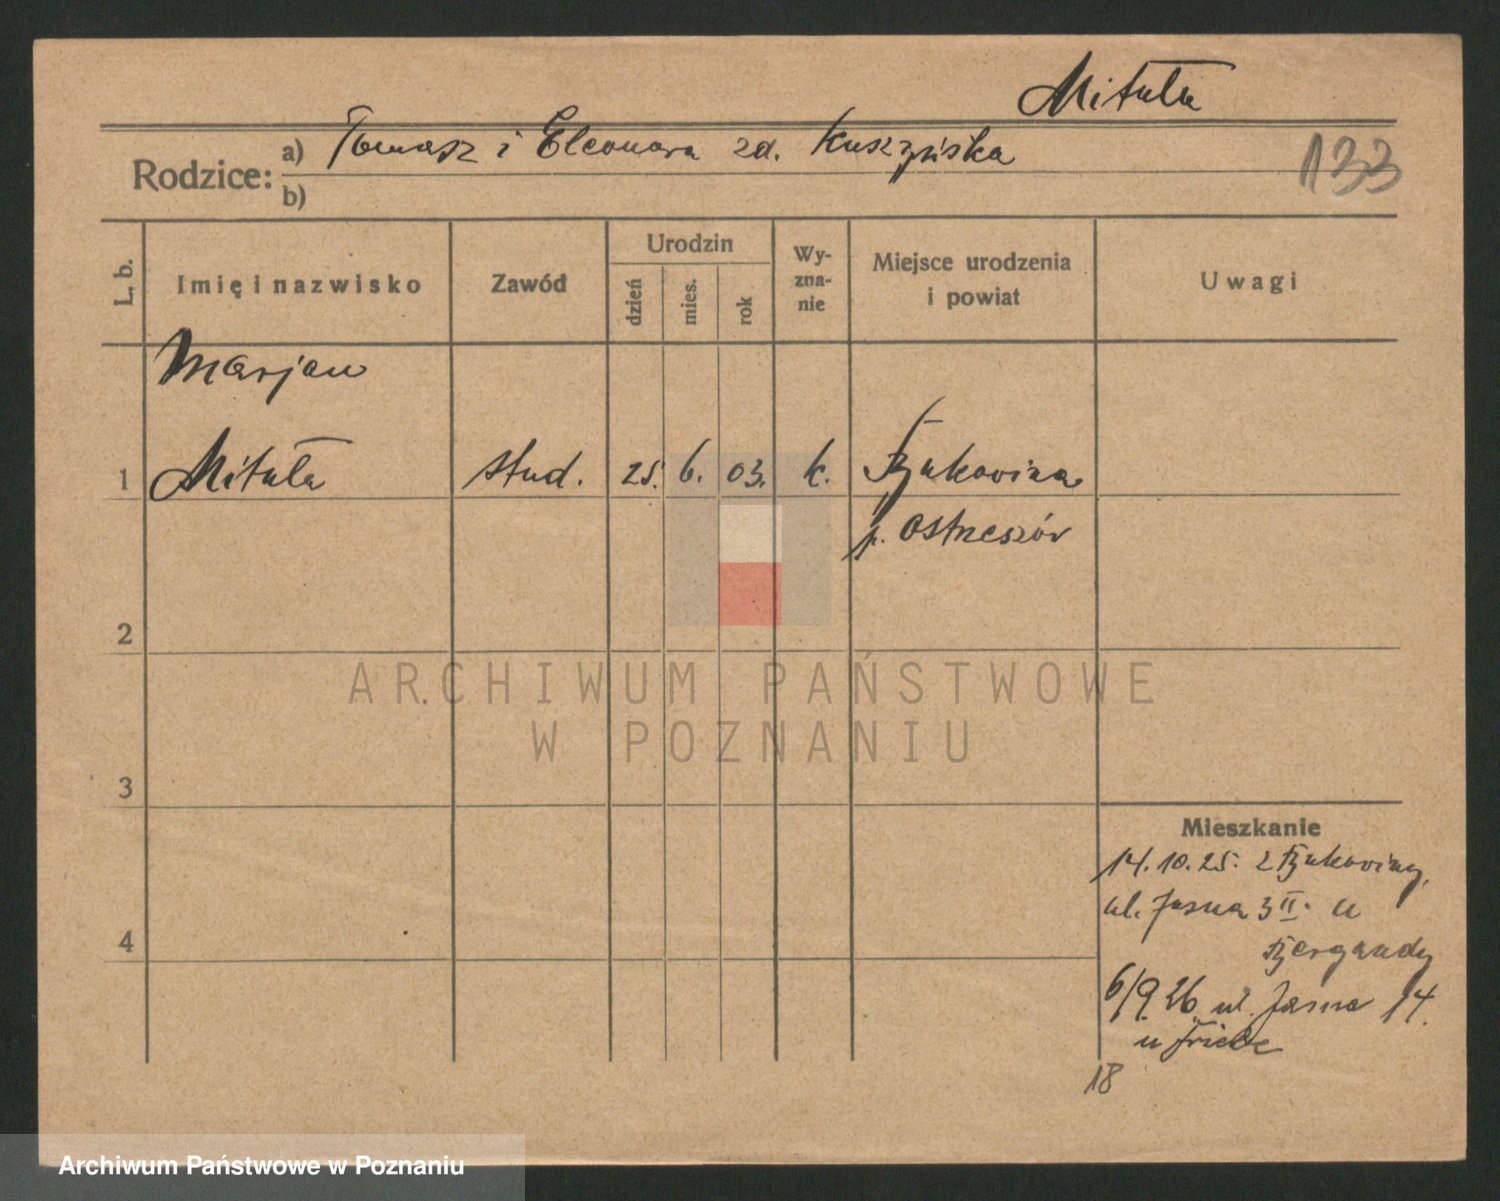 Mituła
Rodzice: a) Tomasz i Eleonora zd.
b)
133
L. b.
Imię i nazwisko
Zawód
Urodzin
dzień
mies.
rok
Wy-
zna-
nie
Miejsce urodzenia
i powiat
Uwagi
Marjan
1 Mituła stud. 25. 6. 03. k. Bukowina
p. Ostrzeszów
2
3
4
ARCHIWUM PAŃSTWOWE
W POZNANIU
Mieszkanie
14.10.25. z Bukowiny,
ul. Jasna 3 II. u
Bergandy
6/9.26. ul. Jasna 14.
u Friebe
18
Archiwum Państwowe w Poznaniu